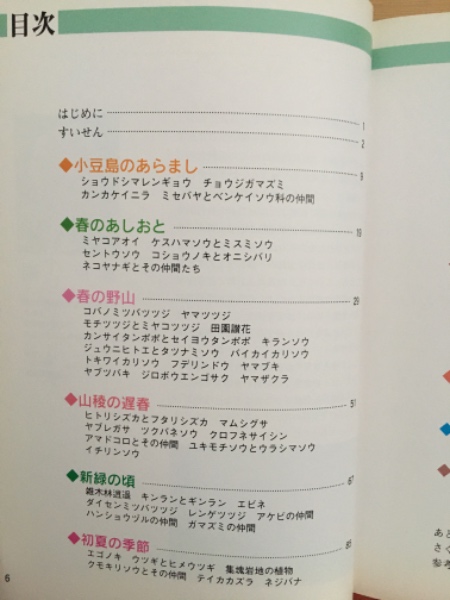 目次
はじめに 1
すいせん 2
◆小豆島のあらまし 9
ショウドシマレンギョウ チョウジガマズミ
カンカケイニラ ミセバヤとベンケイソウ科の仲間
◆春のあしおと
ミヤコアオイ ケスハマソウとミスミソウ
セントウソウ コショウノキとオニシバリ
ネコヤナギとその仲間たち
◆春の野山 29
コバノミツバツツジ ヤマツツジ
モチツツジとミヤコツツジ 田園讃花
カンサイタンポポとセイヨウタンポポ キランソウ
ジュウニヒトエとタツナミソウ バイカイカリソウ
トキワイカリソウ フデリンドウ ヤマブキ
ヤブツバキ ジロボウエンゴサク ヤマザクラ
◆山稜の遅春 51
ヒトリシズカとフタリシズカ マムシグサ
ヤブレガサ ツクバネソウ クロフネサイシン
アマドコロとその仲間 ユキモチソウとウラシマソウ
イチリンソウ
◆新緑の頃 67
雑木林逍遥 キンランとギンラン エビネ
ダイセンミツバツツジ レンゲツツジ アケビの仲間
ハンショウヅルの仲間 ガマズミの仲間
◆初夏の季節 85
エゴノキ ウツギとヒメウツギ 集塊岩地の植物
クモキリソウとその仲間 テイカカズラ ネジバナ
6
あと
さく
参考